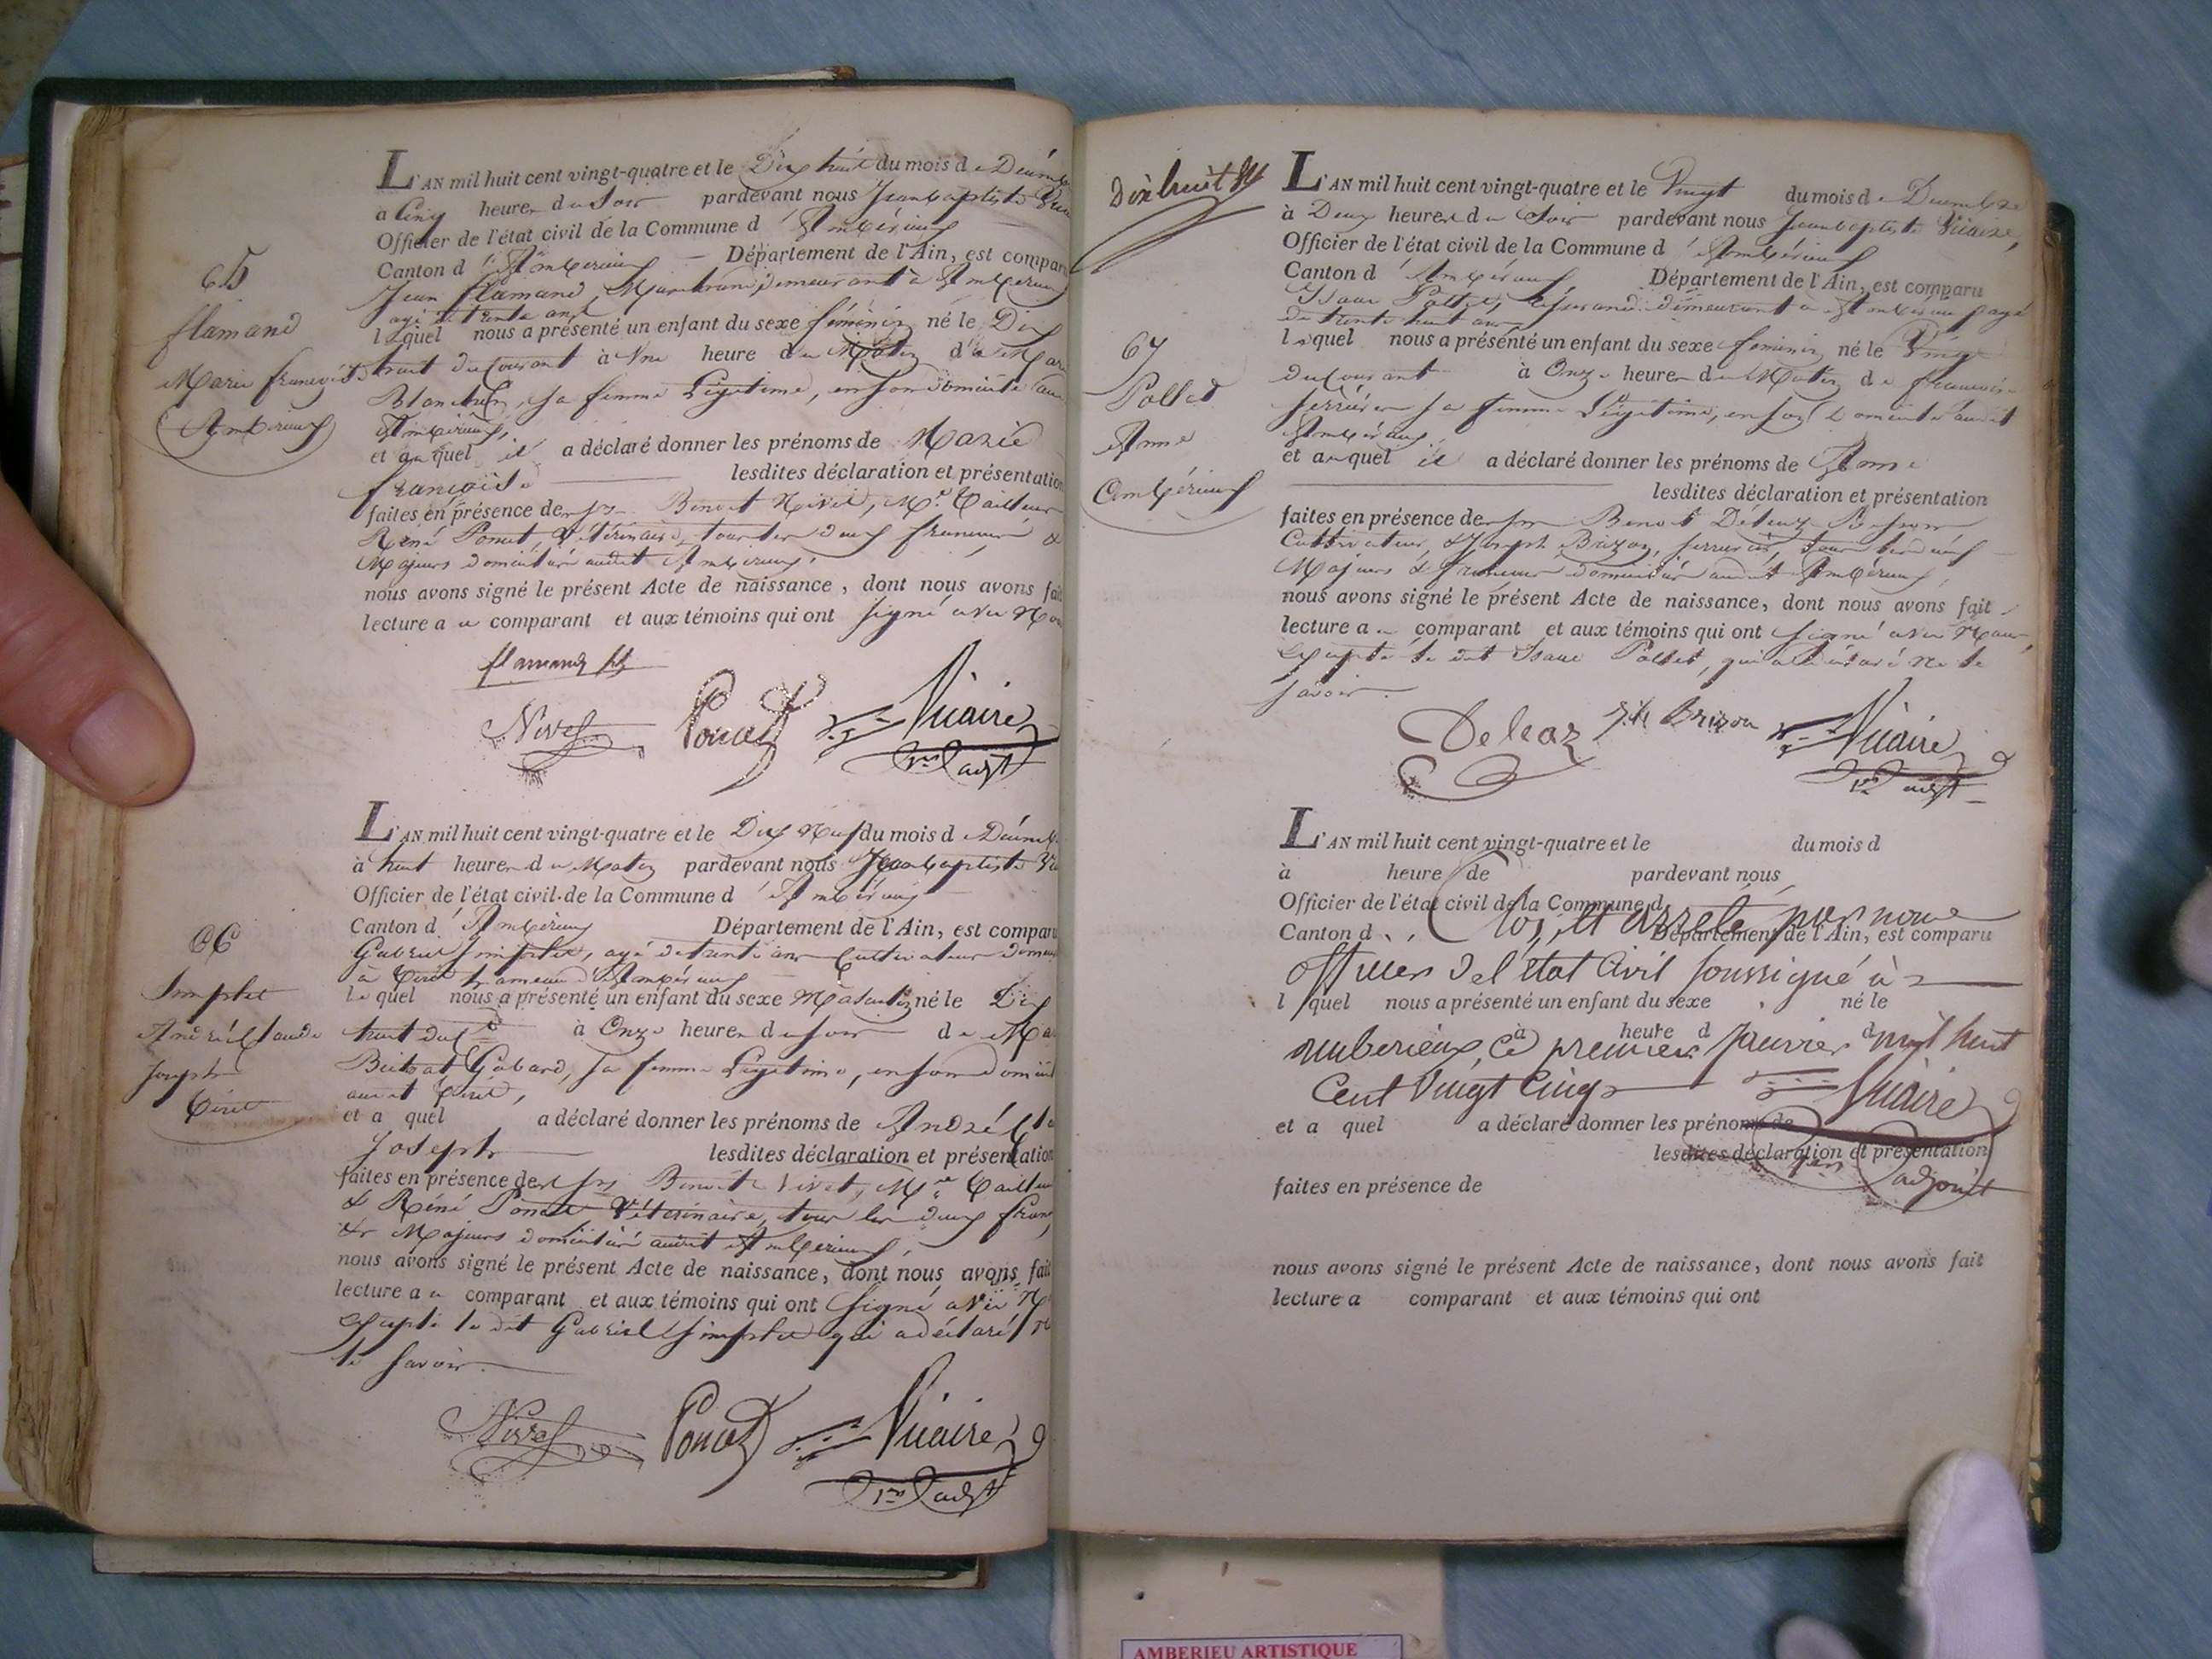 65
flamand
Marie françoise
Ambérieux
L'AN mil huit cent vingt-quatre et le Dix huit du mois de
à Cinq heures du Soir pardevant nous Jeanbaptiste
Officier de l'état civil de la Commune d'Ambérieux
Canton d'Ambérieux Département de l'Ain, est
Jean flamand, demeurant à
agé de trente ans
lequel nous a présenté un enfant du sexe féminin né le Dix
huit du Courant à Une heure du Matin de
sa femme Légitime, en son domicile
Ambérieux,
et auquel il a déclaré donner les prénoms de Marie
françoise lesdites déclaration et
faites en présence des srs Benoit Nivet, Md. Tailleur
René Poncet, Vétérinaire, tous les deux français &
Majeurs domiciliés audit Ambérieux,
nous avons signé le présent Acte de naissance, dont nous avons fait
lecture au comparant et aux témoins qui ont signé avec
flamand
Nivet Poncet Vicaire
1er adjt
66
Simplet
André Claude
Joseph
Tiret
L'AN mil huit cent vingt-quatre et le Dix Neuf du mois de
à huit heures du Matin pardevant nous Jeanbaptiste
Officier de l'état civil de la Commune d'Ambérieux
Canton d'Ambérieux Département de l'Ain, est
Gabriel Simplet, agé de trente ans Cultivateur
à Tiret hameau d'Ambérieux
lequel nous a présenté un enfant du sexe Masculin né le Dix
huit du Ct à Onze heures du soir de
Gabard, sa femme Légitime, en son
audit Tiret,
et a quel a déclaré donner les prénoms de André
Joseph lesdites déclaration et présentation
faites en présence des srs Benoit Nivet, Tailleur
& René Poncet Vétérinaire, tous les deux
& Majeurs domiciliés audit Ambérieux,
nous avons signé le présent Acte de naissance, dont nous avons fait
lecture au comparant et aux témoins qui ont Signé avec
excepté le dit Gabriel Simplet qui a déclaré ne
le savoir.
Nivet Poncet Vicaire
1er adjt
Dix huit
67
Pollet
Anne
Ambérieux
L'AN mil huit cent vingt-quatre et le Vingt du mois de Décembre
à Deux heures du Soir pardevant nous Jeanbaptiste Vicaire,
Officier de l'état civil de la Commune d'Ambérieux
Canton d'Ambérieux Département de l'Ain, est comparu
Isaac Pollet, tisserand demeurant à Ambérieux, agé
de trente huit ans
lequel nous a présenté un enfant du sexe féminin né le Vingt
du Courant à Onze heures du Matin de françoise
ferrière sa femme Légitime, en son domicile audit
Ambérieux
et auquel il a déclaré donner les prénoms de Anne
lesdites déclaration et présentation
faites en présence des srs Benoit
Cultivateur, & Joseph Brizon, serrurier, tous les deux
Majeurs & français domiciliés audit Ambérieux,
nous avons signé le présent Acte de naissance, dont nous avons fait
lecture au comparant et aux témoins qui ont signé avec Nous,
excepté le dit Isaac Pollet, qui a déclaré ne le
savoir.
Deleaz Brizon Vicaire
1er adjt
L'AN mil huit cent vingt-quatre et le du mois d
à heure de pardevant nous
Officier de l'état civil de la Commune d
Clos, et arreté par nous
Canton d Département de l'Ain, est comparu
officier de l'état Civil soussigné à
l quel nous a présenté un enfant du sexe né le
à heure d d
amberieux, ce premier janvier mil huit
Cent Vingt Cinq Vicaire
et a quel a déclaré donner les prénoms de
lesdites déclaration et présentation
1er adjoint
faites en présence de
nous avons signé le présent Acte de naissance, dont nous avons fait
lecture a comparant et aux témoins qui ont
AMBERIEU ARTISTIQUE